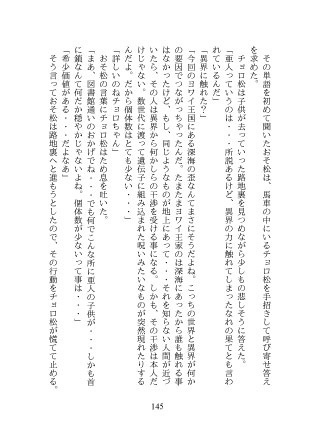 その単語を初めて聞いたおそ松は、馬車の中にいるチョロ松を手招きして呼び寄せ答え
を求めた。
チョロ松は子供が去っていった路地裏を見つめながら少しもの悲しそうに答えた。
「亜人っていうのは・・・所説あるけど、異界の力に触れてしまったなれの果てとも言わ
れているんだ」
「異界に触れた？」
「今回のヨワイ王国にある深海の歪なんてまさにそうだよね。こっちの世界と異界が何か
の要因でつながっちゃったんだ。たまたまヨワイ王家のは深海にあったから誰も触れる事
はなかったけど、もし、同じようなものが地上にあって・・・それを知らない人間が近づ
いたら、その人は異界から何かしらの干渉を受ける事になる。しかも、その干渉は本人だ
けじゃない。数世代に渡って遺伝子に組み込まれた呪いみたいなものが突然現れたりする
んだよ。だから個体数はとても少ない・・・」
「詳しいのねチョロちゃん」
おそ松の言葉にチョロ松はため息を吐いた。
「まあ、図書館通いのおかげでね・・・でも何でこんな所に亜人の子供が・・・しかも首
に鎖なんて何だか穏やかじゃないよね。個体数が少ないって事は・・・」
「希少価値がある・・・だよなあ」
そう言っておそ松は路地裏へと進もうとしたので、その行動をチョロ松が慌てて止める。
145